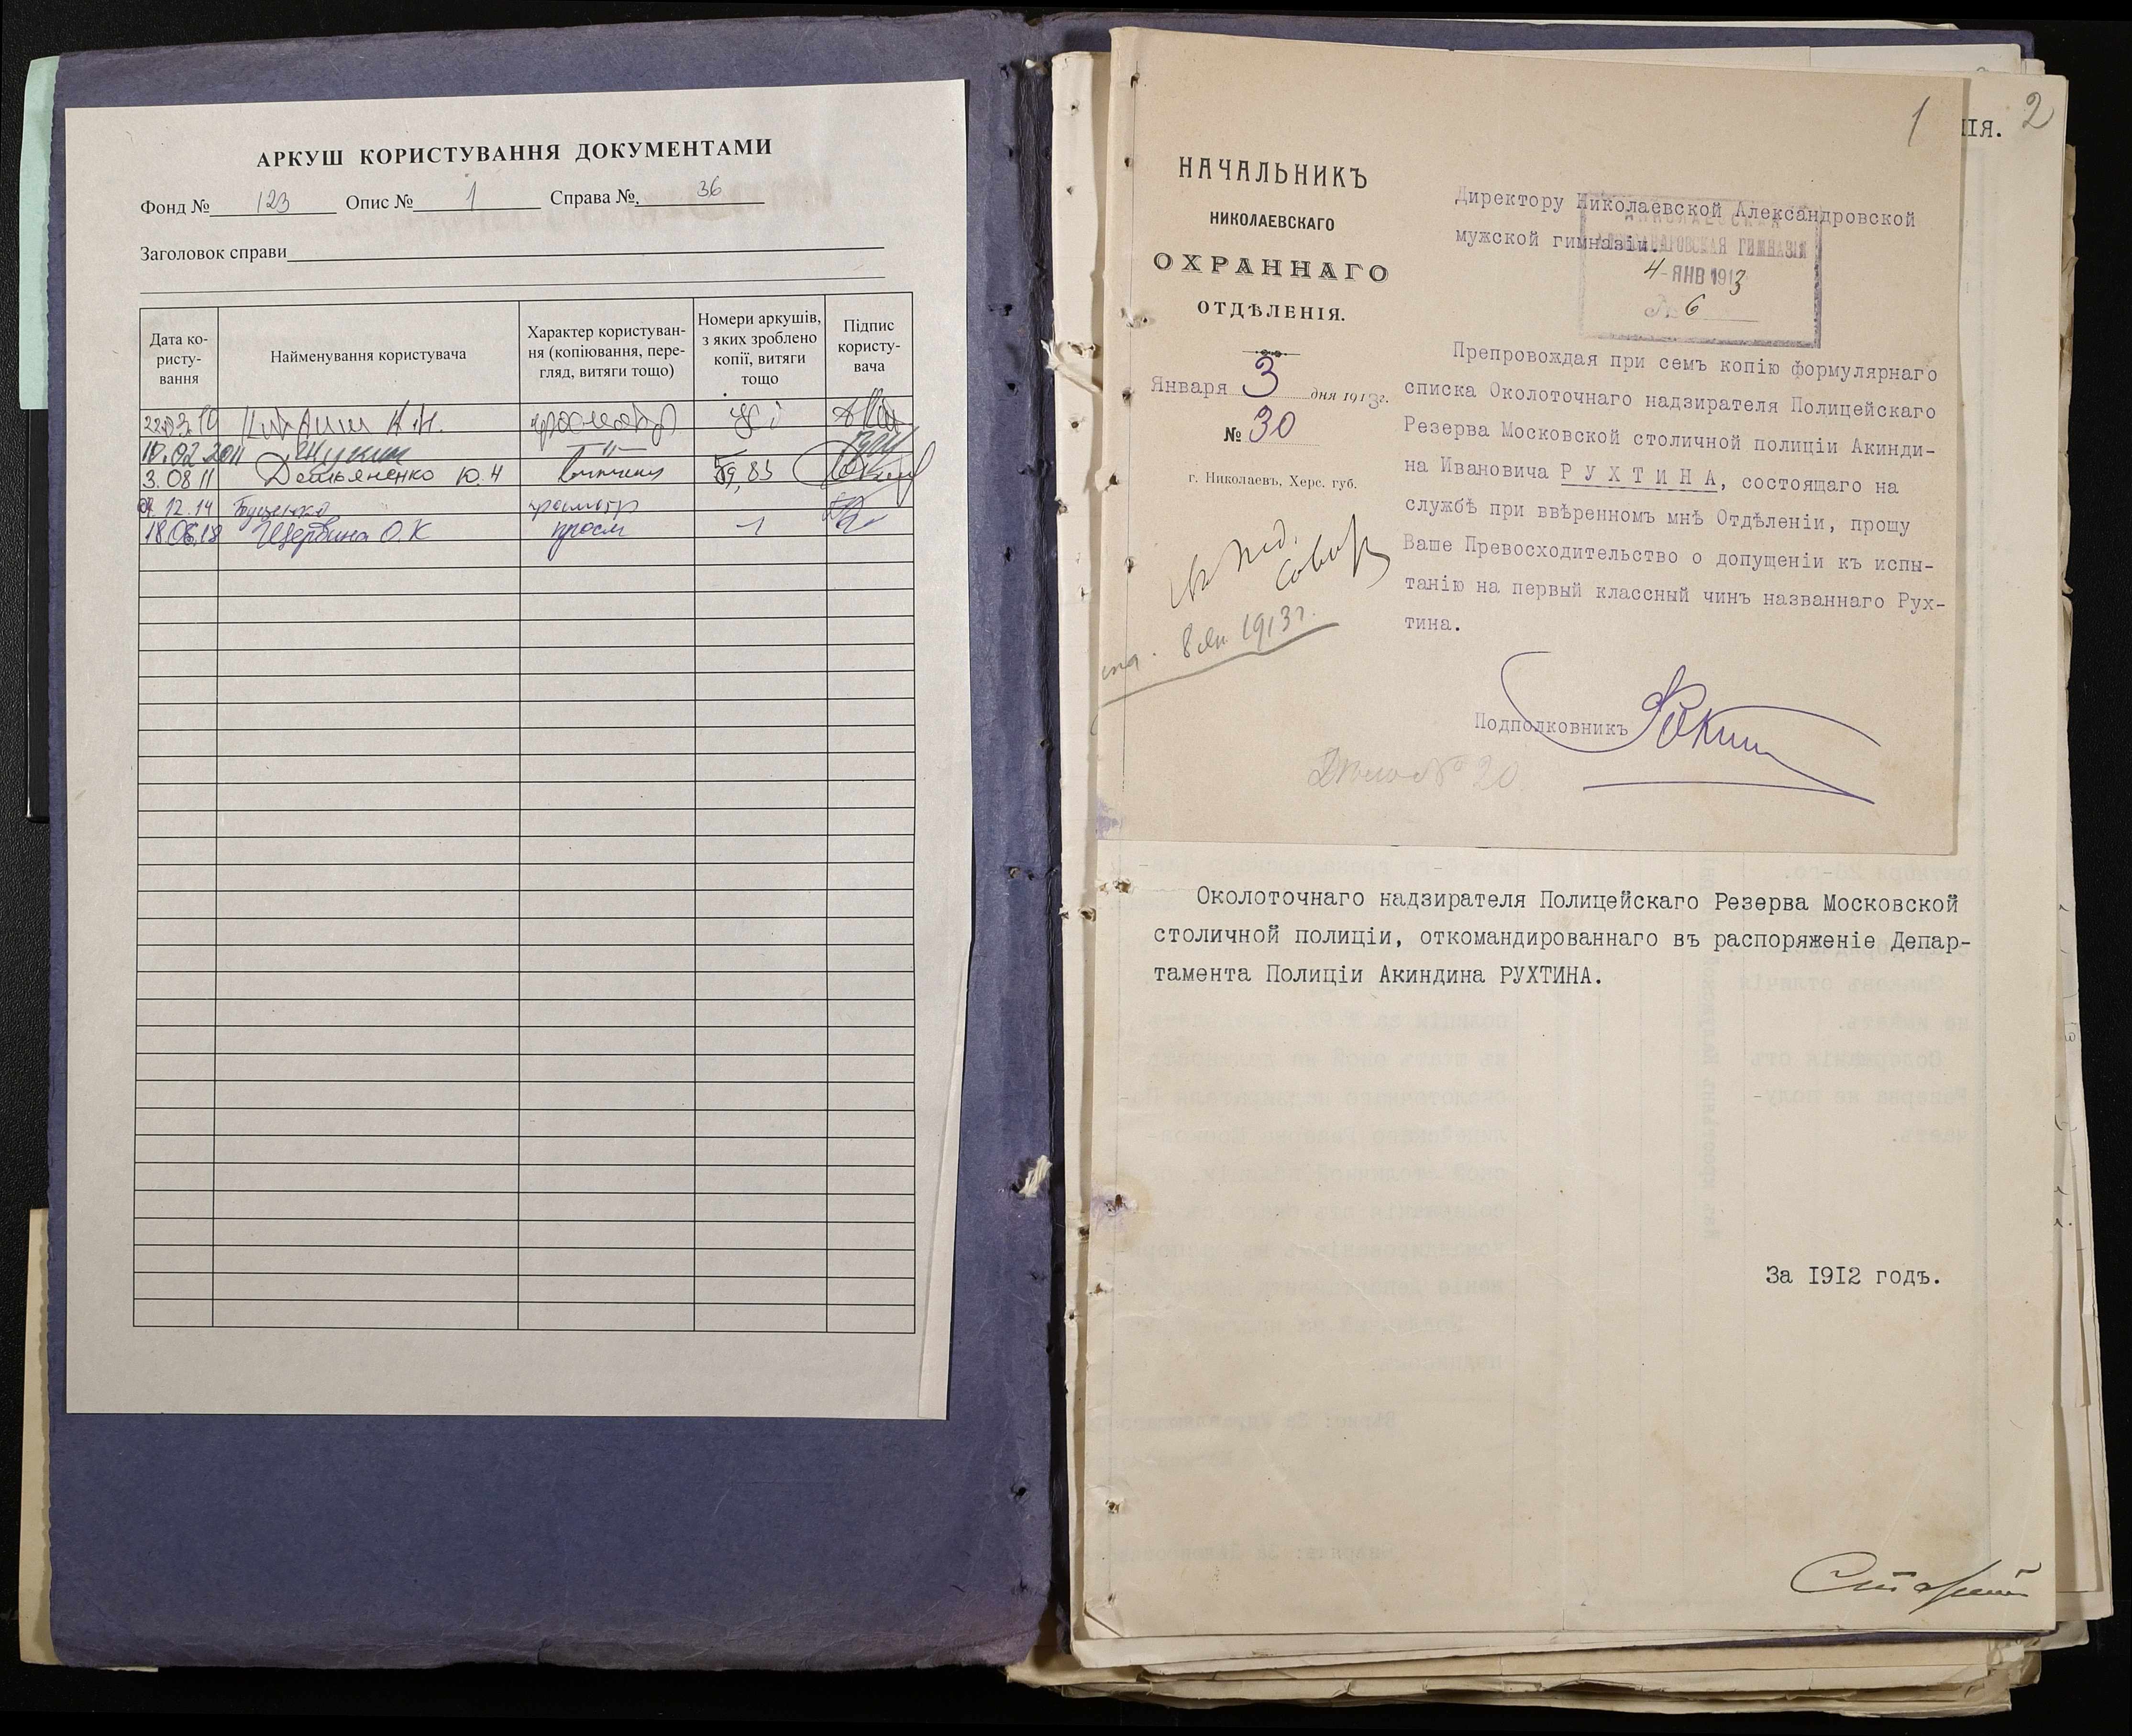 АРКУШ КОРИСТУВАННЯ ДОКУМЕНТАМИ
Фонд № 123 Опис № 1 Справа №. 36
Заголовок справи
Дата ко-
ристу-
вання
Найменування користувача
Характер користуван-
ня (копіювання, пере-
гляд, витяги тощо)
Номери аркушів,
з яких зроблено
копії, витяги
тощо
Підпис
користу-
вача
10.02.2011
3.08 11 Ю.Ч 59, 83
12.14
18.06.18 Щербина О.К просм
1
НАЧАЛЬНИКЪ
НИКОЛАЕВСКАГО
ОХРАННАГО
ОТДѢЛЕНІЯ.
Января 3 дня 1913г.
№ 30
г. Николаевъ, Херс. губ.
8 Ян. 1913г.
Директору Николаевской Александровской
мужской гимназіи.
НИКОЛАЕВСКАЯ
АЛЕКСАНДРОВСКАЯ ГИМНАЗІЯ
4-ЯНВ 1913
№ 6
Препровождая при семъ копію формулярнаго
списка Околоточнаго надзирателя Полицейскаго
Резерва Московской столичной полиціи Акинди-
на Ивановича РУХТИНА, состоящаго на
службѣ при ввѣренномъ мнѣ Отдѣленіи, прошу
Ваше Превосходительство о допущеніи къ испы-
танію на первый классный чинъ названнаго Рух-
тина.
Подполковникъ
№ 20
ІІЯ. 2
Околоточнаго надзирателя Полицейскаго Резерва Московской
столичной полиціи, откомандированнаго въ распоряженіе Депар-
тамента Полиціи Акиндина РУХТИНА.
За 1912 годъ.